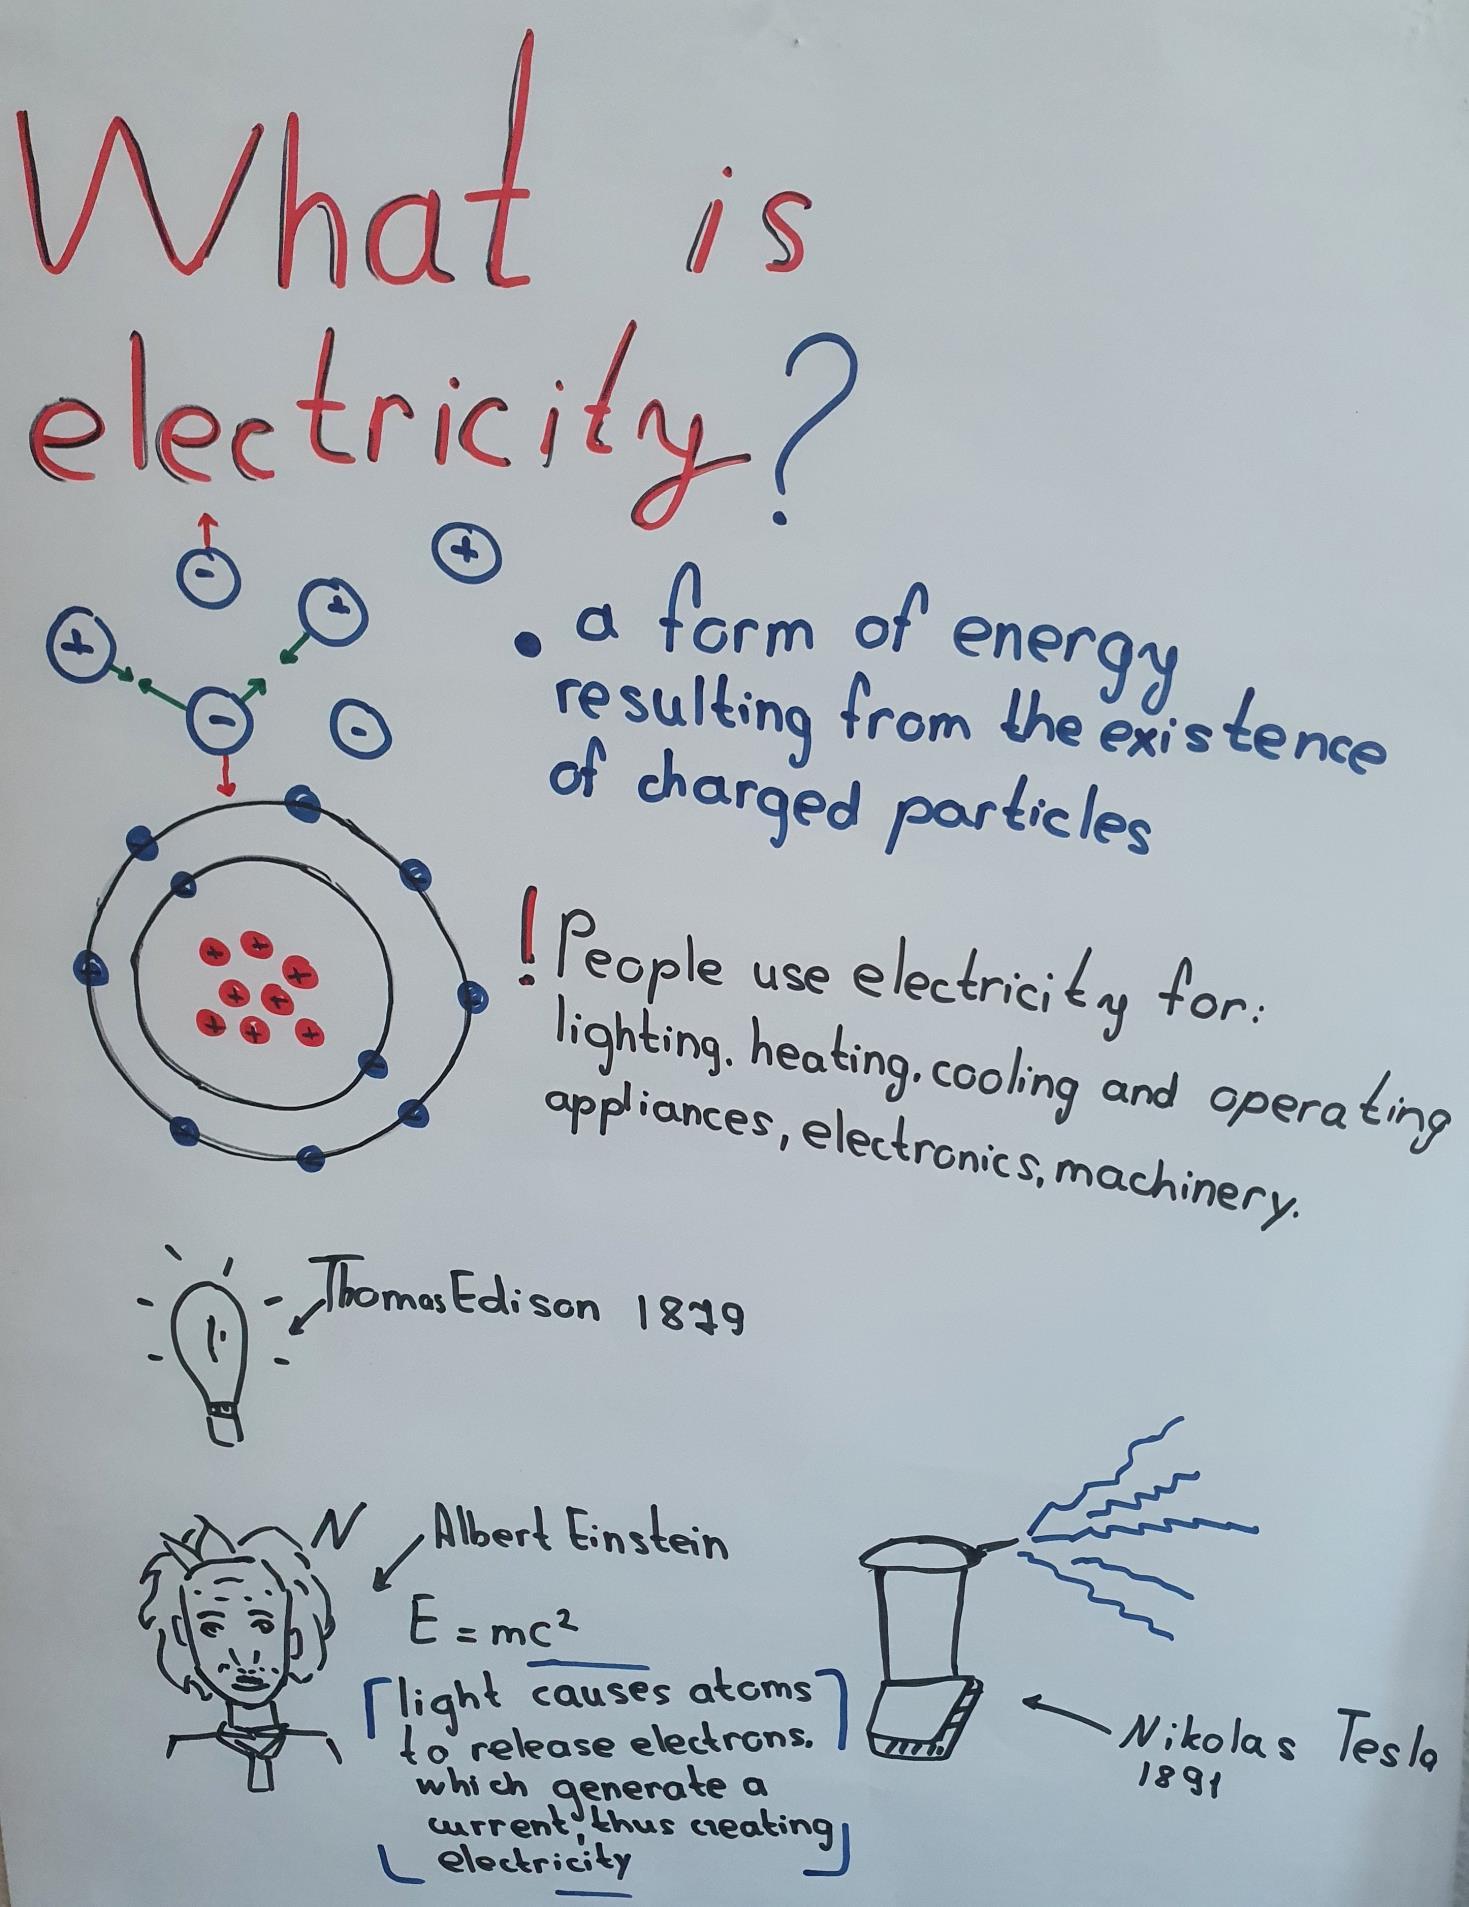 What is
electricity?
• a form of energy
resulting from the existence
of charged particles
! People use electricity for:
lighting. heating. cooling and operating
appliances, electronics, machinery.
Thomas Edison 1879
Albert Einstein
E = mc²
[light causes atoms
to release electrons.
which generate a
current, thus creating
electricity]
Nikolas Tesla
1891
+
-
+
+
-
-